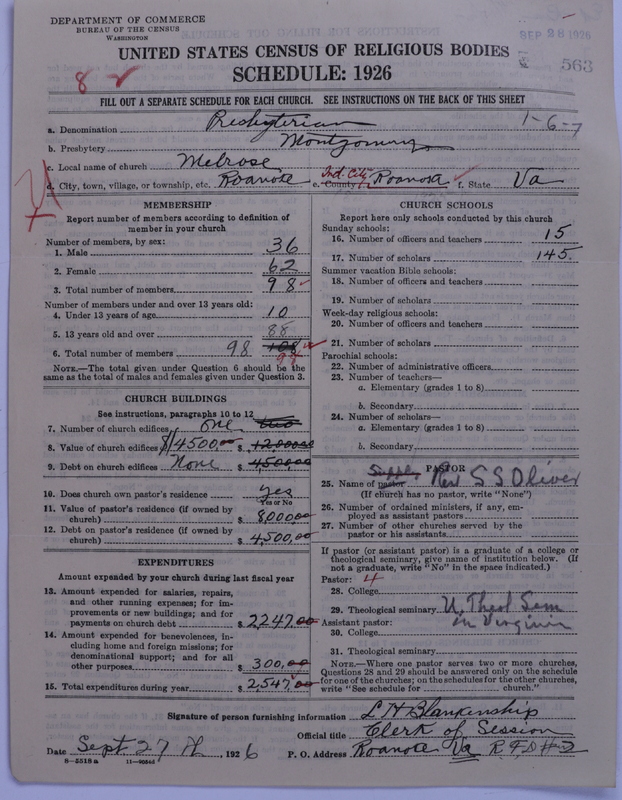 DEPARTMENT OF COMMERCE
BUREAU OF THE CENSUS
WASHINGTON
SEP 28 1926
563
UNITED STATES CENSUS OF RELIGIOUS BODIES
SCHEDULE: 1926
8
FILL OUT A SEPARATE SCHEDULE FOR EACH CHURCH. SEE INSTRUCTIONS ON THE BACK OF THIS SHEET
a. Denomination Presbyterian 1-6-7
b. Presbytery Montgomery
c. Local name of church Melrose
d. City, town, village, or township, etc. Roanoke e. County Ind. City Roanoke f. State Va
MEMBERSHIP
Report number of members according to definition of
member in your church
Number of members, by sex:
1. Male 36
2. Female 62
3. Total number of members 98
Number of members under and over 13 years old:
4. Under 13 years of age 10
5. 13 years old and over 88
6. Total number of members 98 108 98
NOTE.—The total given under Question 6 should be the
same as the total of males and females given under Question 3.
CHURCH BUILDINGS
See instructions, paragraphs 10 to 12
7. Number of church edifices one two
8. Value of church edifices $14500.00 $ 12,000.00
9. Debt on church edifices None $ 4500.00
10. Does church own pastor's residence yes
Yes or No
11. Value of pastor's residence (if owned by
church) $ 8,000.00
12. Debt on pastor's residence (if owned by
church) $ 4,500.00
EXPENDITURES
Amount expended by your church during last fiscal year
13. Amount expended for salaries, repairs,
and other running expenses; for im-
provements or new buildings; and for
payments on church debt $ 2247.00
14. Amount expended for benevolences, in-
cluding home and foreign missions; for
denominational support; and for all
other purposes $ 300.00
15. Total expenditures during year $ 2,547.00
CHURCH SCHOOLS
Report here only schools conducted by this church
Sunday schools:
16. Number of officers and teachers 15
17. Number of scholars 145
Summer vacation Bible schools:
18. Number of officers and teachers
19. Number of scholars
Week-day religious schools:
20. Number of officers and teachers
21. Number of scholars
Parochial schools:
22. Number of administrative officers
23. Number of teachers—
a. Elementary (grades 1 to 8)
b. Secondary
24. Number of scholars—
a. Elementary (grades 1 to 8)
b. Secondary
PASTOR
Supply
25. Name of pastor Rev S S Oliver
(If church has no pastor, write "None")
26. Number of ordained ministers, if any, em-
ployed as assistant pastors
27. Number of other churches served by the
pastor or his assistants
If pastor (or assistant pastor) is a graduate of a college or
theological seminary, give name of institution below. (If
not a graduate, write "No" in the space indicated.)
Pastor: 4
28. College
29. Theological seminary U. Theol Sem
Assistant pastor: in Virginia
30. College
31. Theological seminary
NOTE.—Where one pastor serves two or more churches,
Questions 28 and 29 should be answered only on the schedule
for one of the churches; on the schedules for the other churches,
write "See schedule for church."
Signature of person furnishing information L H Blankinship
Official title Clerk of Session
Date Sept. 27 th, 1926 P. O. Address Roanoke Va R F D #2
8-5518 a